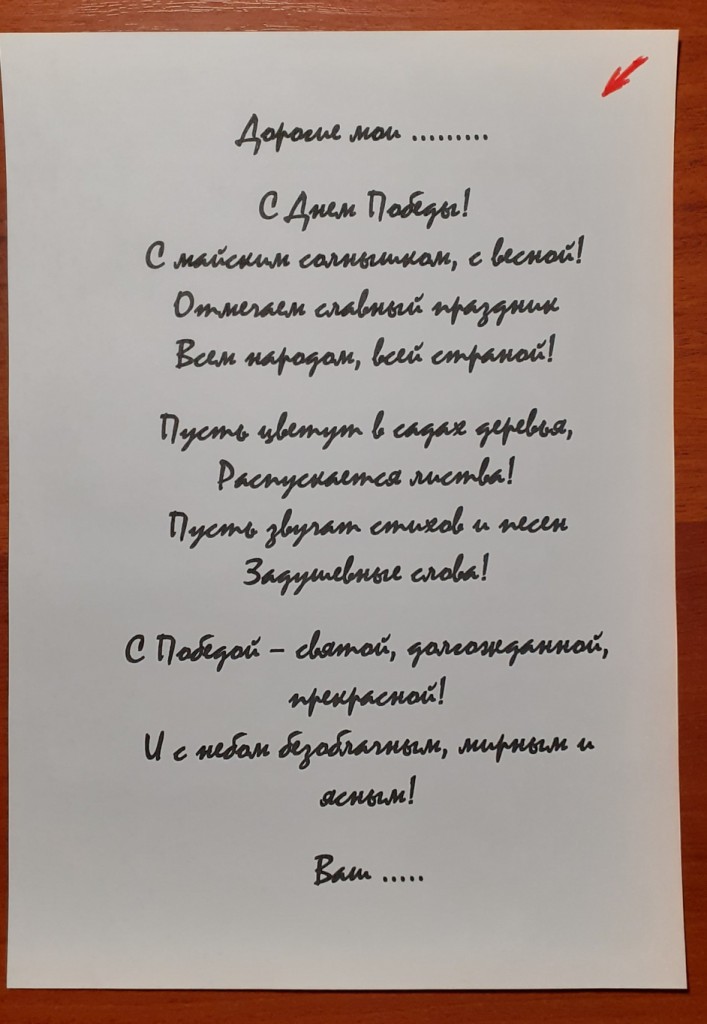 Дорогие мои .........
С Днем Победы!
С майским солнышком, с весной!
Отмечаем славный праздник
Всем народом, всей страной!
Пусть цветут в садах деревья,
Распускается листва!
Пусть звучат стихов и песен
Задушевные слова!
С Победой – святой, долгожданной,
прекрасной!
И с небом безоблачным, мирным и
ясным!
Ваш .....